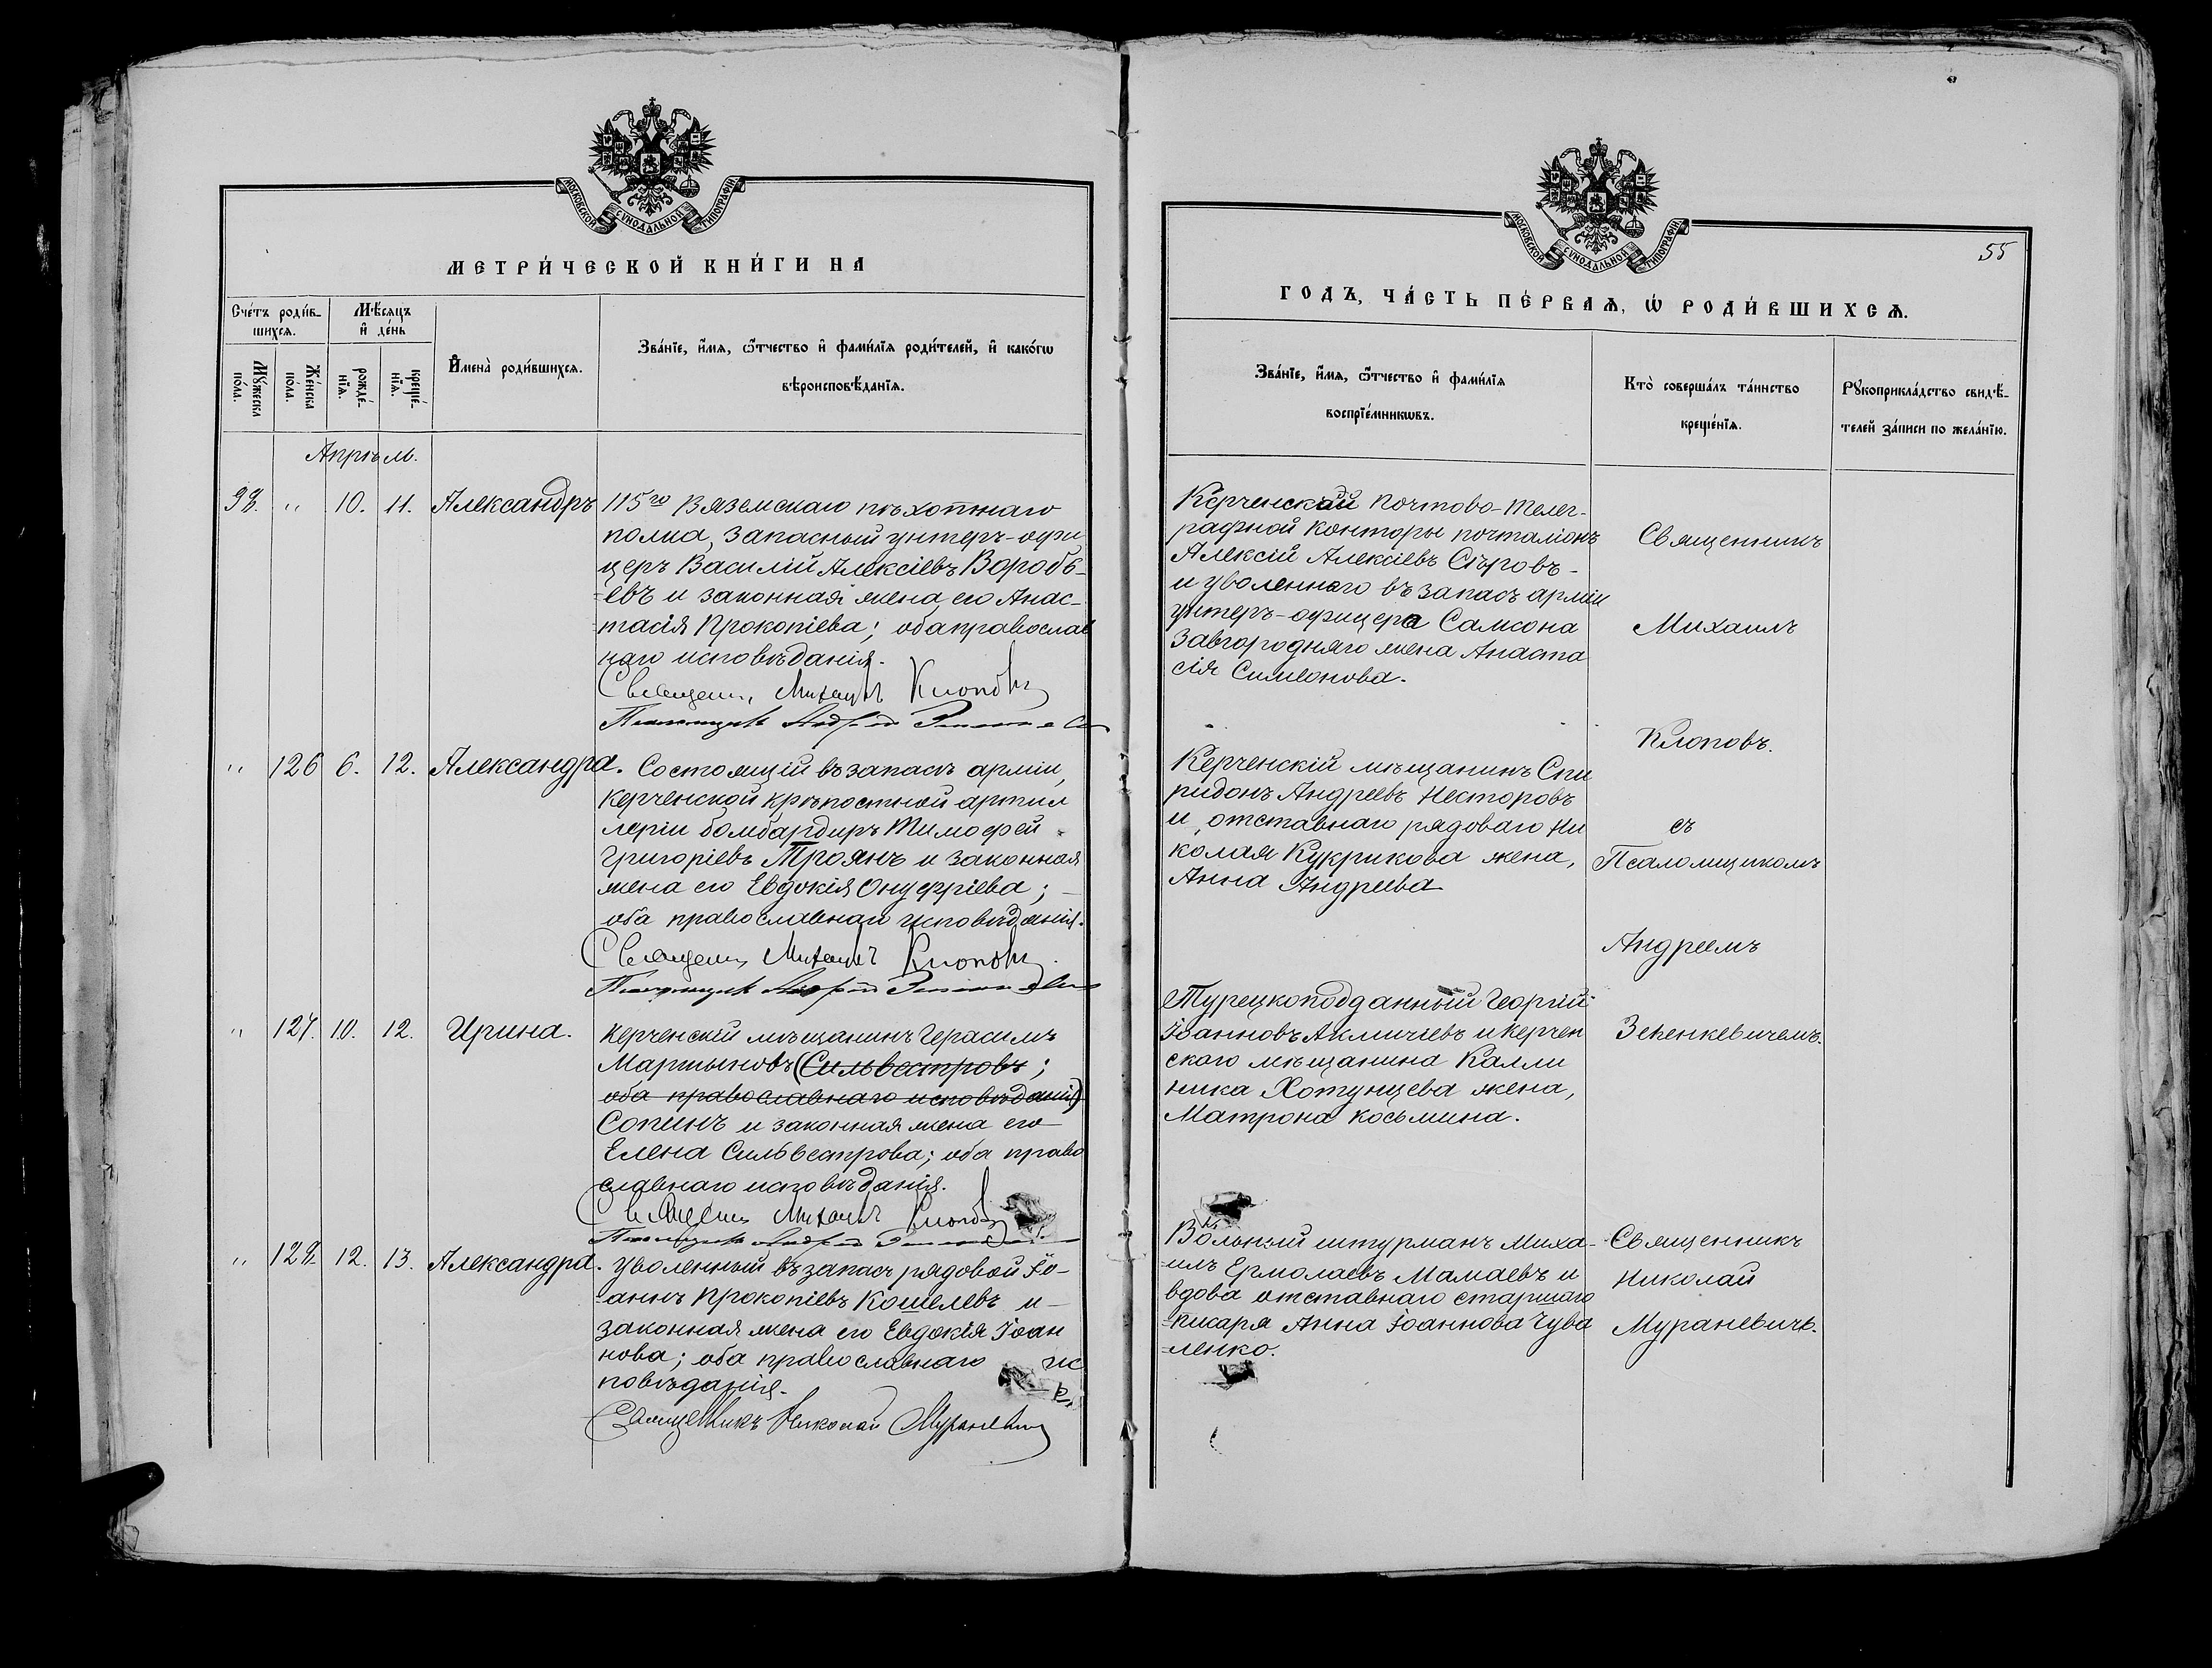 МОСКОВСКОЙ СѴНОДАЛЬНОЙ ТИПОГРАФІИ.
МЕТРИ́ЧЕСКОЙ КНИ́ГИ НА
Сче́тъ роди́в-
шихсѧ.
Мѣ́сѧцъ
и҆ де́нь
Мꙋ́жеска
по́ла.
Же́нска
по́ла.
рожде́-
нїѧ.
креще́-
нїѧ.
И҆мена̀ роди́вшихсѧ.
Зва́нїе, и҆́мѧ, ѻ҆́тчество и҆ фами́лїѧ роди́телей, и҆ како́гѡ
вѣроисповѣ́данїѧ.
Апрѣль.
98. " 10. 11. Александръ
115го Вяземскаго пѣхотнаго
полка, запасный унтеръ-офи
церъ Василій Алексіевъ Воробь-
=евъ и законная жена его Анас-
тасія Прокопіева; оба православ
наго исповѣданія.
Священ. Михаилъ Клоповъ
" 126 6. 12. Александра.
Состоящій въ запасѣ арміи,
Керченской крѣпостной артил
леріи бомбардиръ Тимофей
Григоріевъ Троянъ и законная
жена его Евдокія Онуфріева;
оба православнаго исповѣданія.
Священ. Михаилъ Клоповъ
" 127. 10. 12. Ирина.
Керченскій мѣщанинъ Герасимъ
Мартыновъ (Сильвестровъ;
оба православнаго исповѣданія)
Сопинъ и законная жена его
Елена Сильвестрова; оба право
славнаго исповѣданія.
Священ. Михаилъ Клоповъ
" 128. 12. 13. Александра.
Уволенный въ запасъ рядовой Іо-
-аннъ Прокопіевъ Кошелевъ и-
законная жена его Евдокія Іоан
нова; оба православнаго ис
повѣданія.
Священникъ Николай Мураневичъ
МОСКОВСКОЙ СѴНОДАЛЬНОЙ ТИПОГРАФІИ.
55
ГОДЪ, ЧА́СТЬ ПЕ́РВАѦ, Ѡ҆ РОДИ́ВШИХСѦ.
Зва́нїе, и҆́мѧ, ѻ҆́тчество и҆ фами́лїѧ
воспрїе́мникѡвъ.
Кто̀ соверша́лъ та́инство
креще́нїѧ.
Рꙋкоприкла́дство свидѣ́-
телей за́писи по жела́нїю.
Керченской Почтово-телег-
рафной Конторы почталіонъ
Алексій Алексіевъ Сѣровъ-
и уволеннаго въ запасъ арміи
унтеръ-офицера Самсона
Завгородняго жена Анаста
сія Симеонова.
Керченскій мѣщанинъ Спи
ридонъ Андреевъ Несторовъ
и, отставнаго рядоваго Ни
колая Кукрикова жена,
Анна Андреева
Турецкоподданный Георгій
Іоанновъ Акмичіевъ и Керчен
скаго мѣщанина Калли
ника Хотунцева жена,
Матрона Косьмина.
Вольный штурманъ Миха-
-илъ Ермолаевъ Мамаевъ и
вдова отставнаго старшаго
-писаря Анна Іоаннова Чува
=ленко.
Священникъ
Михаилъ
Клоповъ.
съ
Псаломщикомъ
Андреемъ
Зененкевичемъ.
Священникъ
Николай
Мураневичъ.